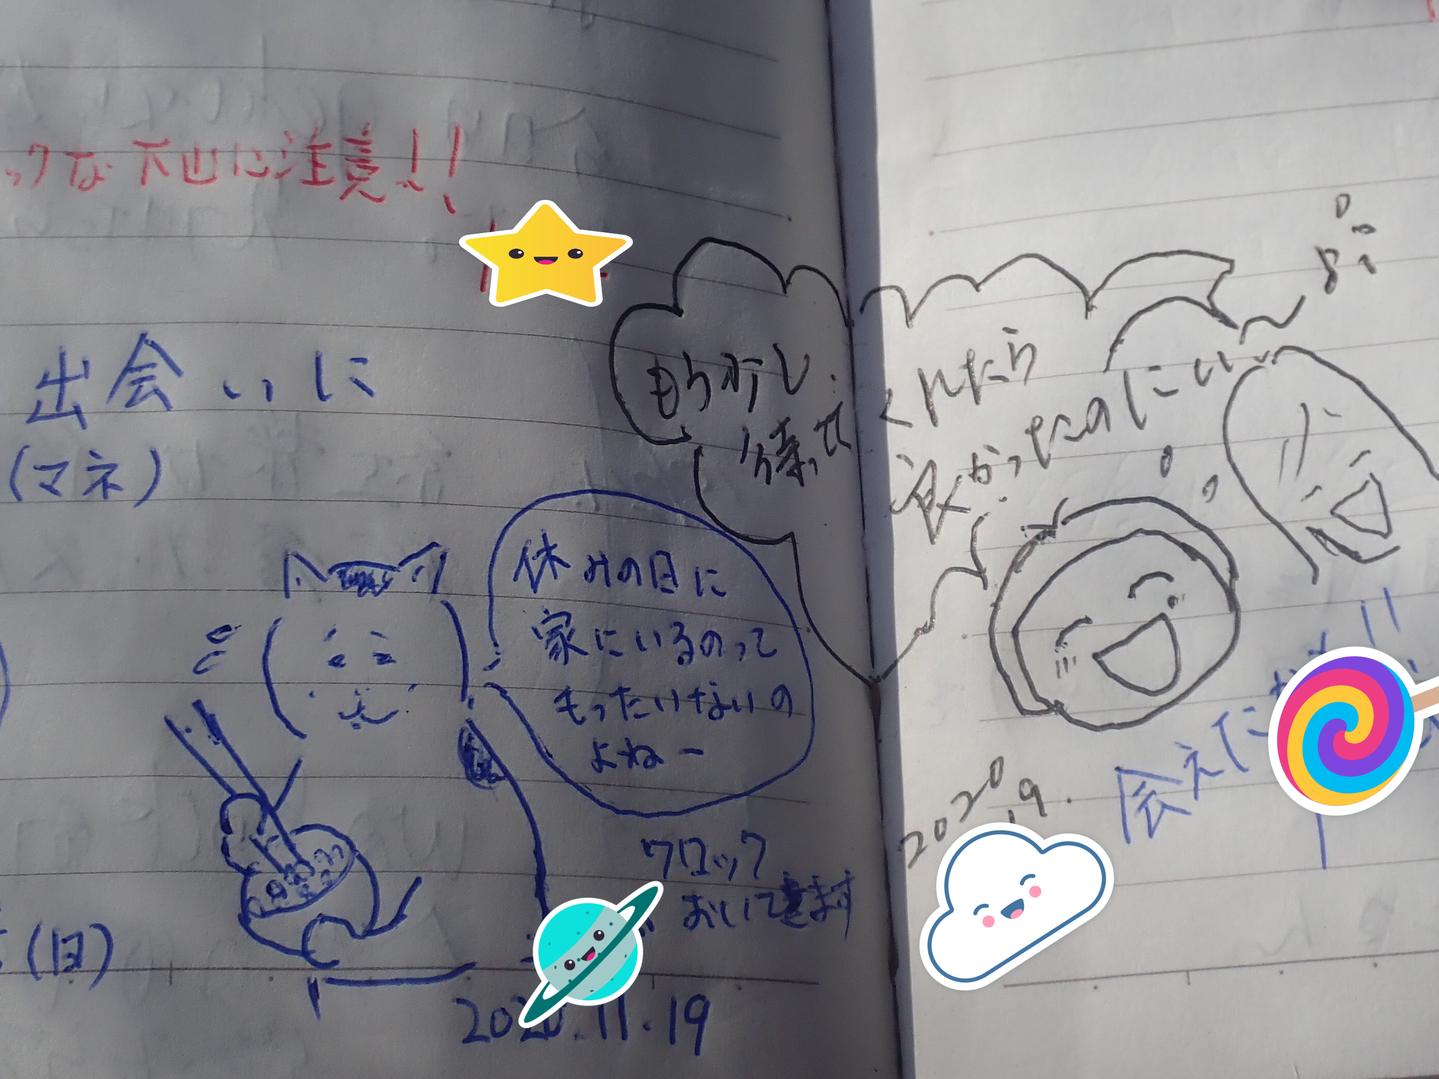 ックな下山に注意!!
出会いに
(マネ)
休みの日に
家にいるのって
もったいないの
よねー
クロック
おいてきます
(日)
2020.11.19
もう少し
待って
くれたら
良かったのにぃ
2020
.19.
会えた